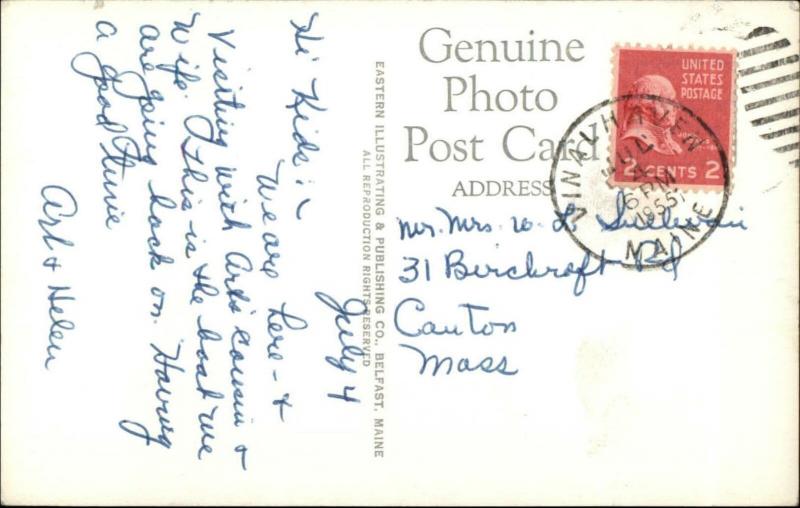 Genuine
Photo
Post Card
ADDRESS
UNITED
STATES
POSTAGE
2 CENTS 2
VINALHAVEN
JUL
6 PM
1955
MAINE
Mr. Mrs. W. L. Sullivan
31 Berchroft Rd
Canton
Mass
EASTERN ILLUSTRATING & PUBLISHING CO., BELFAST, MAINE
ALL REPRODUCTION RIGHTS RESERVED
July 4
Hi Kids:
We are here - &
Visiting with Art's cousin &
Wife. This is the boat we
are going back on. Having
a good time
Art & Helen